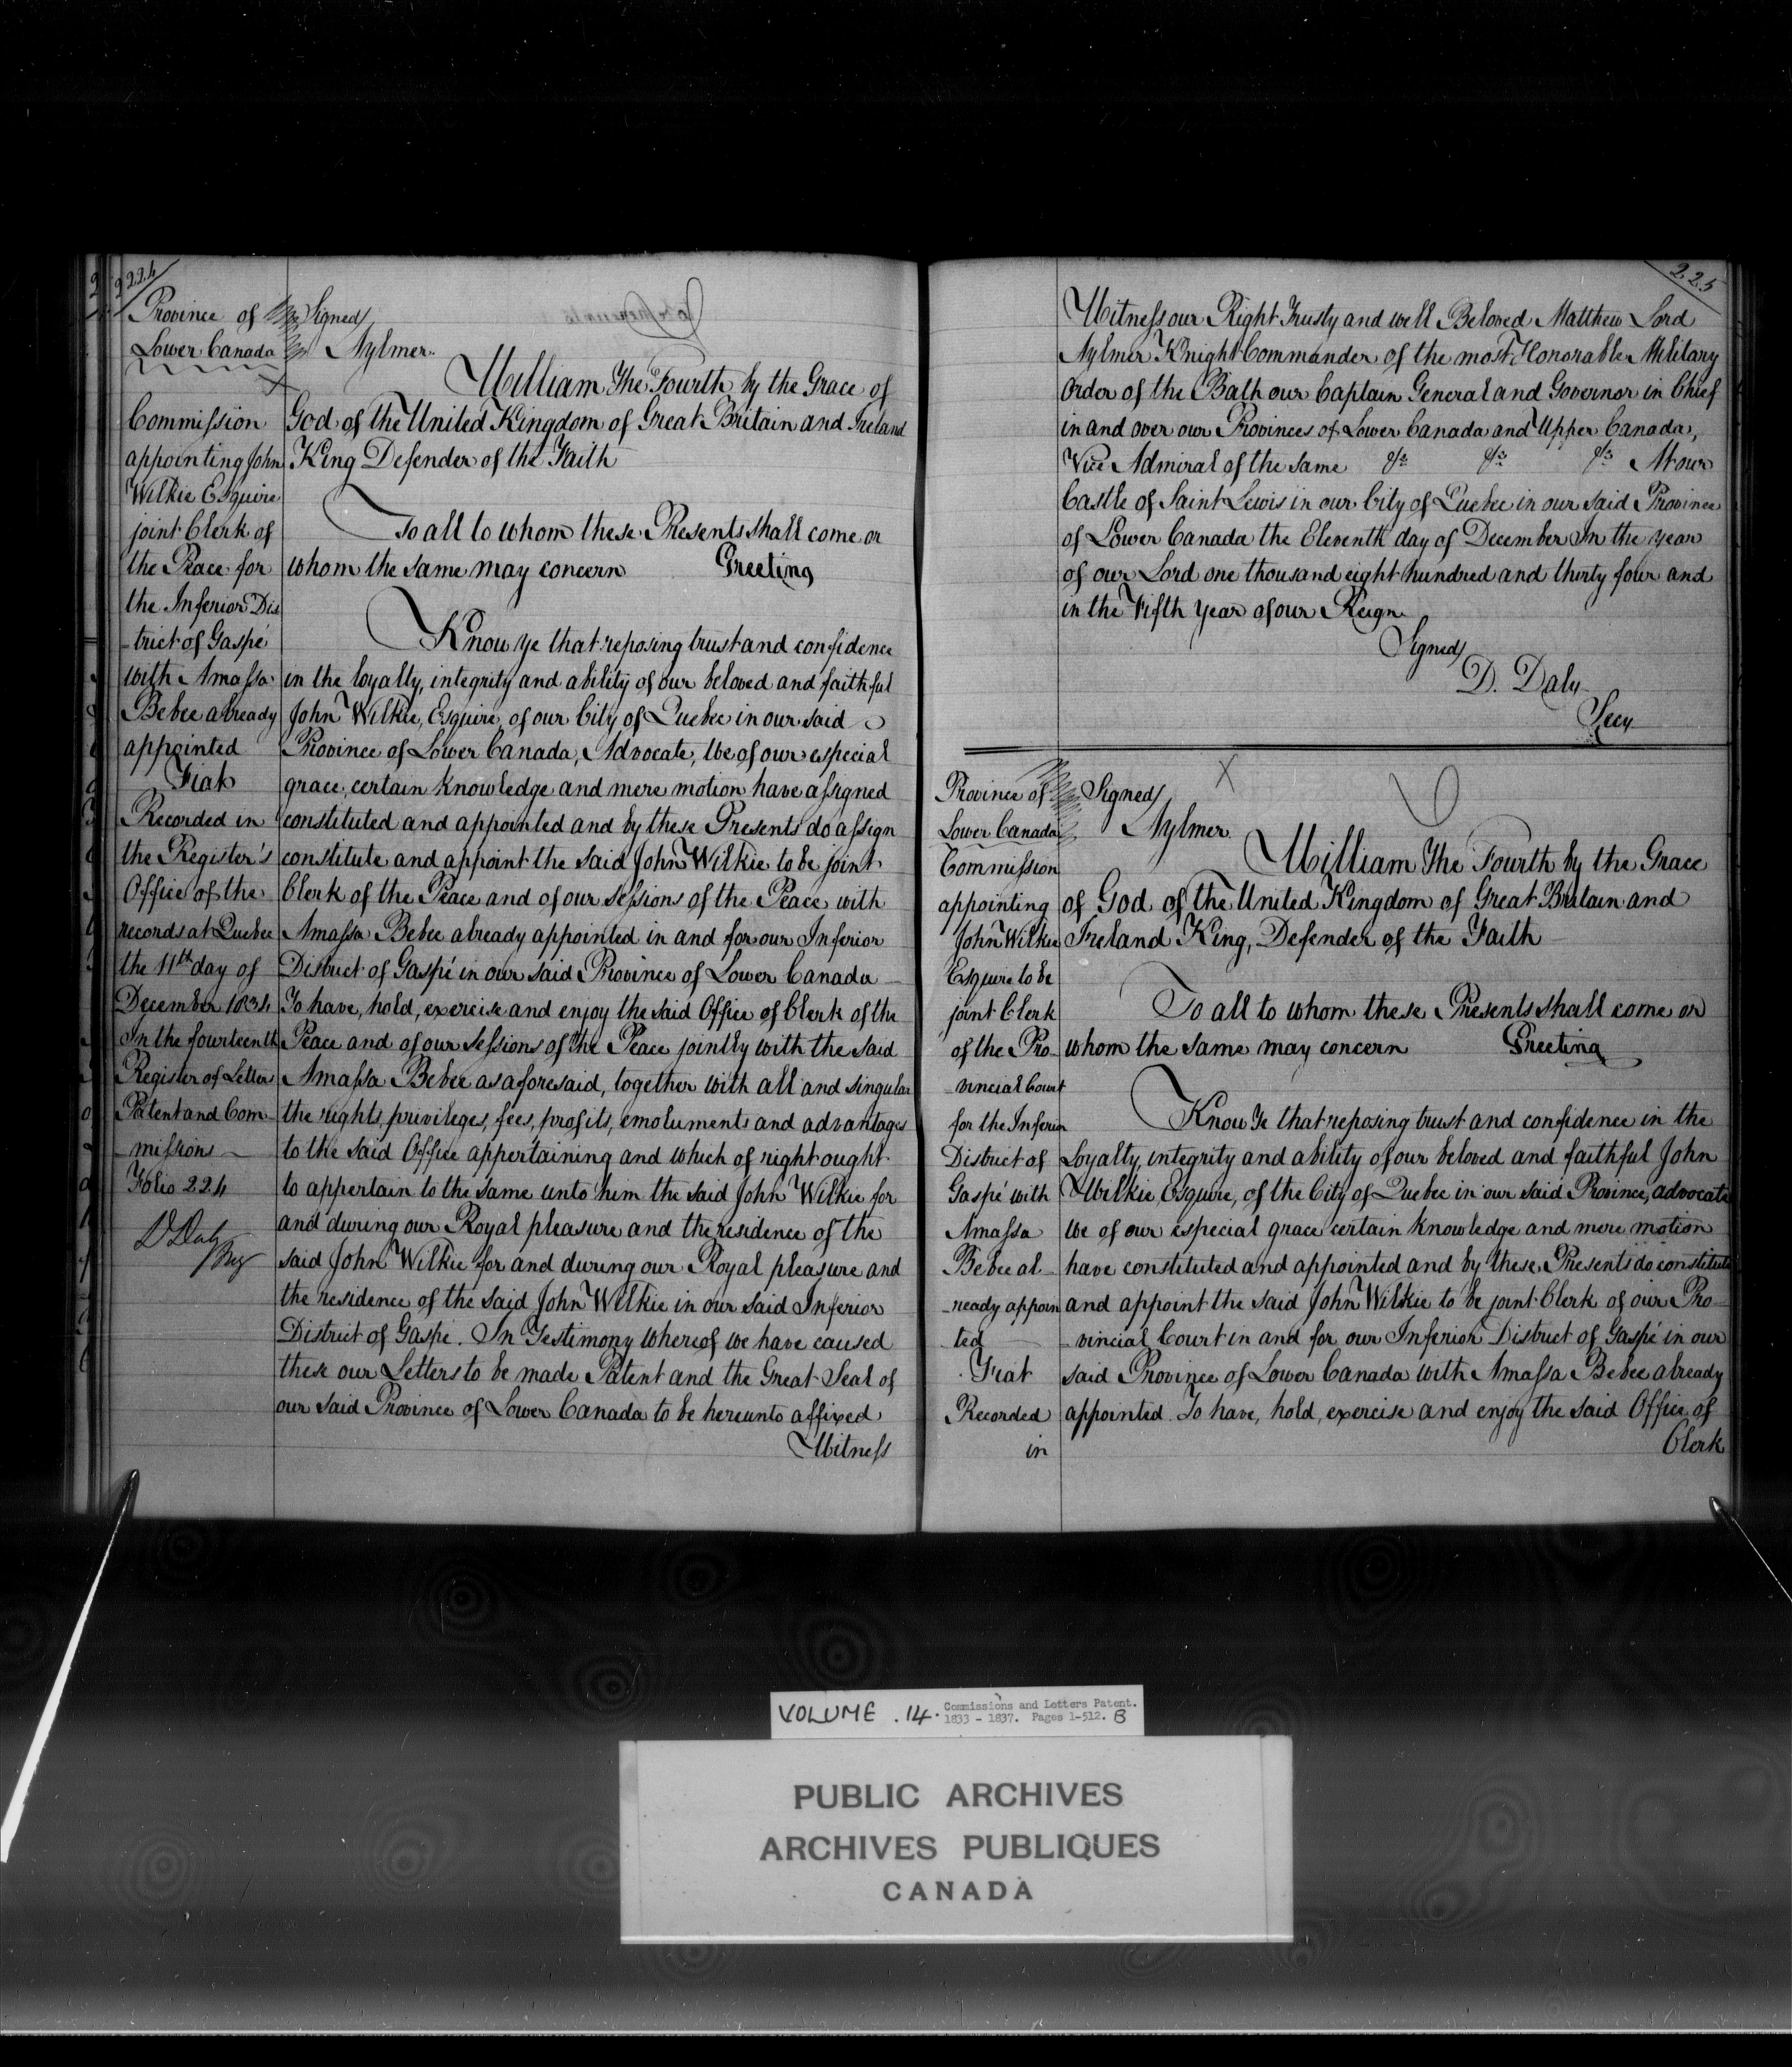 224
Province of
Lower Canada
Commission
appointing John
Wilkie Esquire
joint Clerk of
the Peace for
the Inferior Dis
-trict of Gaspé
with Amassa
Bebee already
appointed
Fiat
Recorded in
the Register's
Office of the
records at Quebec
the 11th day of
December 1834
In the fourteenth
Register of Letters
Patent and Com-
missions
Folio 224
D Daly
Reg
Signed/
Aylmer.
William The Fourth by the Grace of
God of the United Kingdom of Great Britain and Ireland
King Defender of the Faith
To all to whom these Presents shall come or
whom the same may concern Greeting
Know ye that reposing trust and confidence
in the loyalty, integrity and ability of our beloved and faithful
John Wilkie, Esquire, of our City of Quebec in our said
Province of Lower Canada, Advocate, We of our especial
grace, certain knowledge and mere motion have assigned
constituted and appointed and by these Presents do assign
constitute and appoint the said John Wilkie to be joint
Clerk of the Peace and of our sessions of the Peace with
Amassa Bebee already appointed in and for our Inferior
District of Gaspé in our said Province of Lower Canada
To have, hold, exercise and enjoy the said Office of Clerk of the
Peace and of our Sessions of the Peace jointly with the said
Amassa Bebee as aforesaid, together with all and singular
the rights, privileges, fees, profits, emoluments and advantages
to the said Office appertaining and which of right ought
to appertain to the same unto him the said John Wilkie for
and during our Royal pleasure and the residence of the
said John Wilkie for and during our Royal pleasure and
the residence of the said John Wilkie in our said Inferior
District of Gaspé. In Testimony whereof we have caused
these our Letters to be made Patent and the Great Seal of
our said Province of Lower Canada to be hereunto affixed
Witness
225
Witness our Right Trusty and well Beloved Matthew Lord
Aylmer Knight Commander of the most Honorable Military
Order of the Bath our Captain General and Governor in Chief
in and over our Provinces of Lower Canada and Upper Canada,
Vice Admiral of the same &c &c &c At our
Castle of Saint Lewis in our City of Quebec in our said Province
of Lower Canada the Eleventh day of December In the year
of our Lord one thousand eight hundred and thirty four and
in the Fifth year of our Reign
Signed/
D. Daly
Secy
Province of
Lower Canada
Commission
appointing
John Wilkie
Esquire to be
joint Clerk
of the Pro-
-vincial Court
for the Inferior
District of
Gaspé with
Amassa
Bebee al-
-ready appoin
-ted
Fiat
Recorded
in
Signed/
Aylmer.
William The Fourth by the Grace
of God of the United Kingdom of Great Britain and
Ireland King, Defender of the Faith
To all to whom these Presents shall come or
whom the same may concern Greeting
Know Ye that reposing trust and confidence in the
Loyalty, integrity and ability of our beloved and faithful John
Wilkie, Esquire, of the City of Quebec in our said Province, advocate
We of our especial grace certain knowledge and mere motion
have constituted and appointed and by these Presents do constitute
and appoint the said John Wilkie to be joint Clerk of our Pro-
-vincial Court in and for our Inferior District of Gaspé in our
said Province of Lower Canada with Amassa Bebee already
appointed. To have, hold, exercise and enjoy the said Office of
Clerk
VOLUME .14. Commissions and Letters Patent.
1833 - 1837. Pages 1-512. B
PUBLIC ARCHIVES
ARCHIVES PUBLIQUES
CANADA